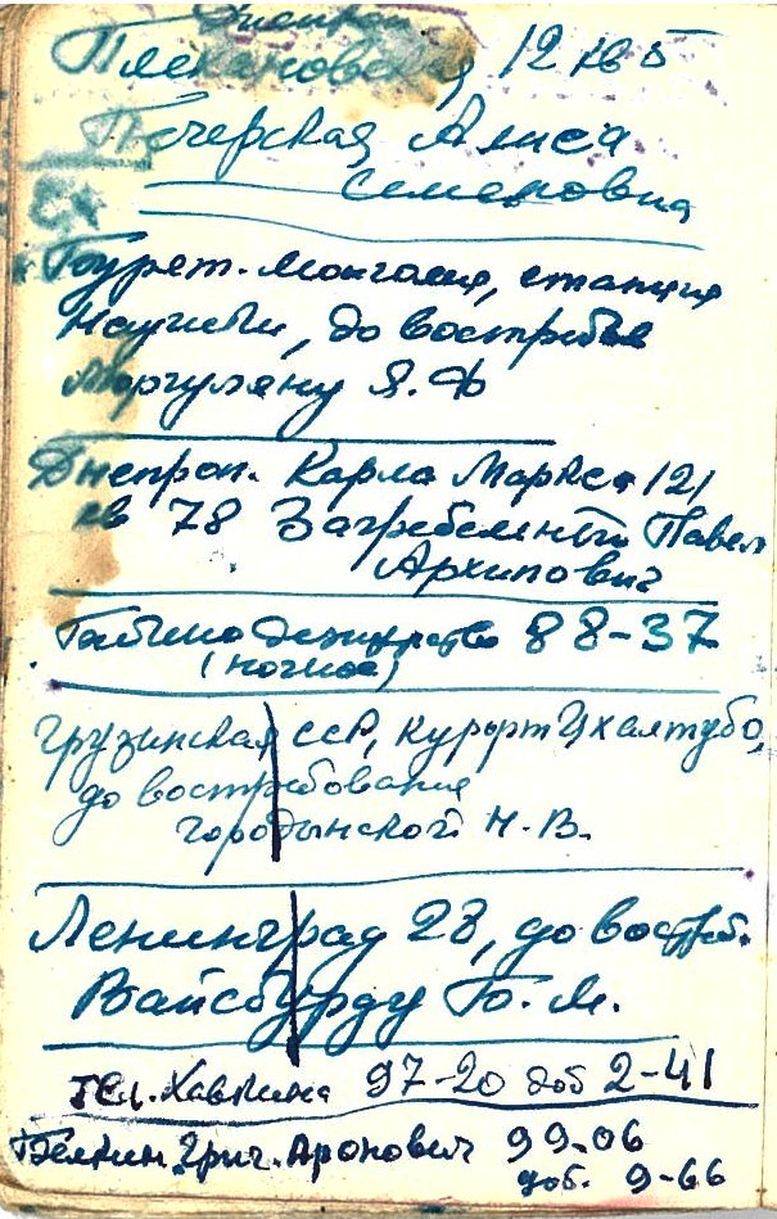 Днепроп
Плехановская, 12 кв 5
Печерская Алиса
Семеновна
Бурят. Монголия, станция
Наушки, до востребов
Моргуляну Я. Ф
Днепроп. Карла Маркса 121
кв 78 Загребельный Павел
Архипович
дежурство 88-37
(ночное)
Грузинская ССР, курорт Цхалтубо,
до востребования
Городынской Н. В.
Ленинград 28, до востреб.
Вайсбурду Ю. М.
тел. Хавкина 97-20 доб 2-41
Белкин Григ. Аронович 99-06
доб. 9-66